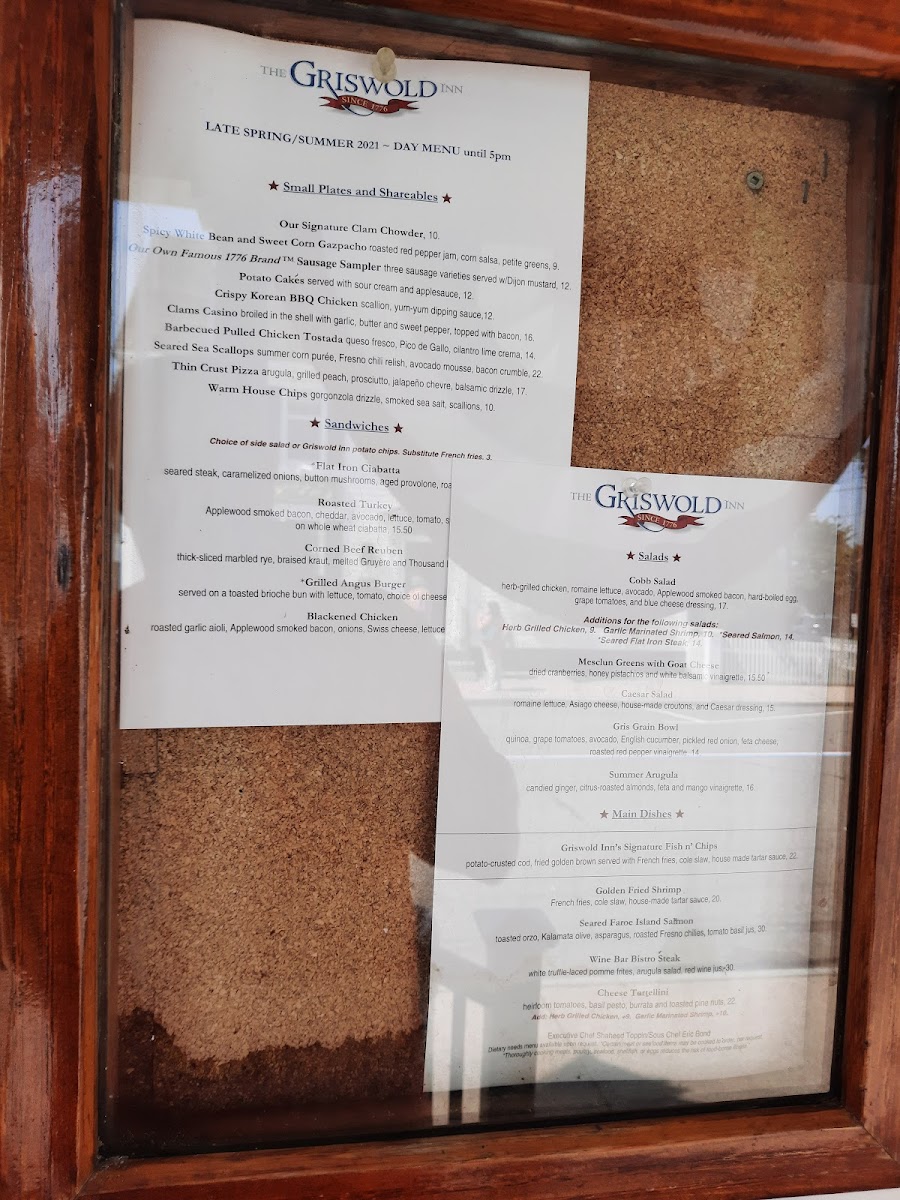 THE GRISWOLD INN
SINCE 1776
LATE SPRING/SUMMER 2021 ~ DAY MENU until 5pm
★ Small Plates and Shareables ★
Our Signature Clam Chowder, 10.
Spicy White Bean and Sweet Corn Gazpacho roasted red pepper jam, corn salsa, petite greens, 9.
Our Own Famous 1776 Brand™ Sausage Sampler three sausage varieties served w/Dijon mustard, 12.
Potato Cakes served with sour cream and applesauce, 12.
Crispy Korean BBQ Chicken scallion, yum-yum dipping sauce, 12.
Clams Casino broiled in the shell with garlic, butter and sweet pepper, topped with bacon, 16.
Barbecued Pulled Chicken Tostada queso fresco, Pico de Gallo, cilantro lime crema, 14.
Seared Sea Scallops summer corn purée, Fresno chili relish, avocado mousse, bacon crumble, 22.
Thin Crust Pizza arugula, grilled peach, prosciutto, jalapeño chevre, balsamic drizzle, 17.
Warm House Chips gorgonzola drizzle, smoked sea salt, scallions, 10.
★ Sandwiches ★
Choice of side salad or Griswold Inn potato chips. Substitute French fries, 3.
*Flat Iron Ciabatta
seared steak, caramelized onions, button mushrooms, aged provolone,
Roasted Turkey
Applewood smoked bacon, cheddar, avocado, lettuce, tomato,
on whole wheat ciabatta, 15.50
Corned Beef Reuben
thick-sliced marbled rye, braised kraut, melted Gruyère and Thousand
*Grilled Angus Burger
served on a toasted brioche bun with lettuce, tomato, choice of cheese
Blackened Chicken
roasted garlic aioli, Applewood smoked bacon, onions, Swiss cheese, lettuce
THE GRISWOLD INN
SINCE 1776
★ Salads ★
Cobb Salad
herb-grilled chicken, romaine lettuce, avocado, Applewood smoked bacon, hard-boiled egg,
grape tomatoes, and blue cheese dressing, 17.
Additions for the following salads:
Herb Grilled Chicken, 9. Garlic Marinated Shrimp, 10. *Seared Salmon, 14.
*Seared Flat Iron Steak, 14.
Mesclun Greens with Goat Cheese
dried cranberries, honey pistachios and white balsamic vinaigrette, 15.50
Caesar Salad
romaine lettuce, Asiago cheese, house-made croutons, and Caesar dressing, 15.
Gris Grain Bowl
quinoa, grape tomatoes, avocado, English cucumber, pickled red onion, feta cheese,
roasted red pepper vinaigrette, 14
Summer Arugula
candied ginger, citrus-roasted almonds, feta and mango vinaigrette, 16.
★ Main Dishes ★
Griswold Inn's Signature Fish n' Chips
potato-crusted cod, fried golden brown served with French fries, cole slaw, house made tartar sauce, 22.
Golden Fried Shrimp
French fries, cole slaw, house-made tartar sauce, 20.
Seared Faroe Island Salmon
toasted orzo, Kalamata olive, asparagus, roasted Fresno chilies, tomato basil jus, 30.
Wine Bar Bistro Steak
white truffle-laced pomme frites, arugula salad, red wine jus, 30.
Cheese Tortellini
heirloom tomatoes, basil pesto, burrata and toasted pine nuts, 22.
Add: Herb Grilled Chicken, +9. Garlic Marinated Shrimp, +10.
Executive Chef Shaheed Toppin/Sous Chef Eric Bond
Dietary needs menu available upon request.